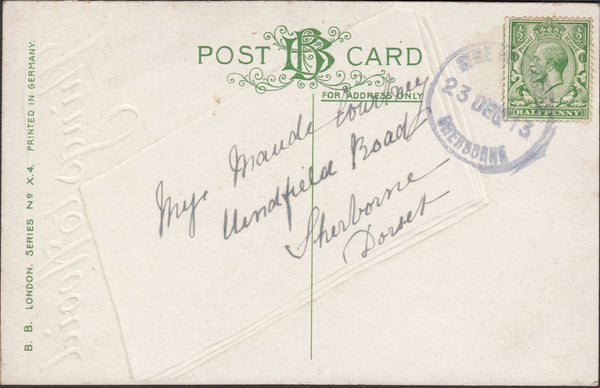 POST BB CARD
FOR ADDRESS ONLY
B. B. LONDON. SERIES Nº X.4. PRINTED IN GERMANY.
½ ½
HALFPENNY
23 DEC 13
SHERBORNE
Maude Courtney
Road
Sherborne
Dorset